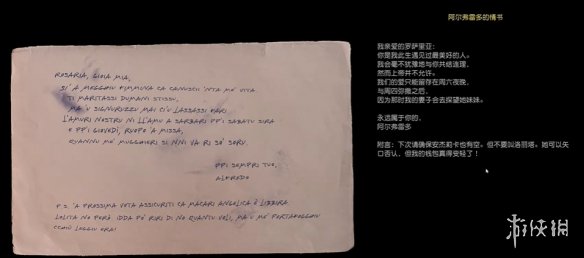 阿尔弗雷多的情书
ROSARIA, GIOIA MIA,
SI 'A MEGGHIU FIMMUNA CA CANUSCU 'NTA ME' VITA.
TI MARITASSI DUMANI STISSU,
MA U SIGNURUZZU MAI CI'U LASSASSI FARI
L'AMURI NOSTRU NI LL'AMU A SARBARI PPI SABATU SIRA
E PPI GIOVEDÌ, RUOPO 'A MISSA,
QUANNU ME' MUGGHIERI SI NNI VA RI SO' SORU.
PPI SEMPRI TUO,
ALFREDO
P.S. 'A PROSSIMA VOTA ASSICURITI CA MACARI ANGELICA È LIBBIRA.
LOLITA NO PERÒ IDDA PO' RIRI DI NO QUANTU VOLI, MA U ME' PORTAFOGGHIU
CCHIÙ LEGGIU ORA!
我亲爱的罗萨里亚:
你是我此生遇见过最美好的人。
我会毫不犹豫地与你共结连理,
然而上帝并不允许。
我们的爱只能留存在周六夜晚,
与周四弥撒之后,
因为那时我的妻子会去探望她妹妹。
永远属于你的,
阿尔弗雷多
附言:下次请确保安杰莉卡也有空。但不要叫洛丽塔。她可以矢
口否认,但我的钱包真得变轻了!
游侠网